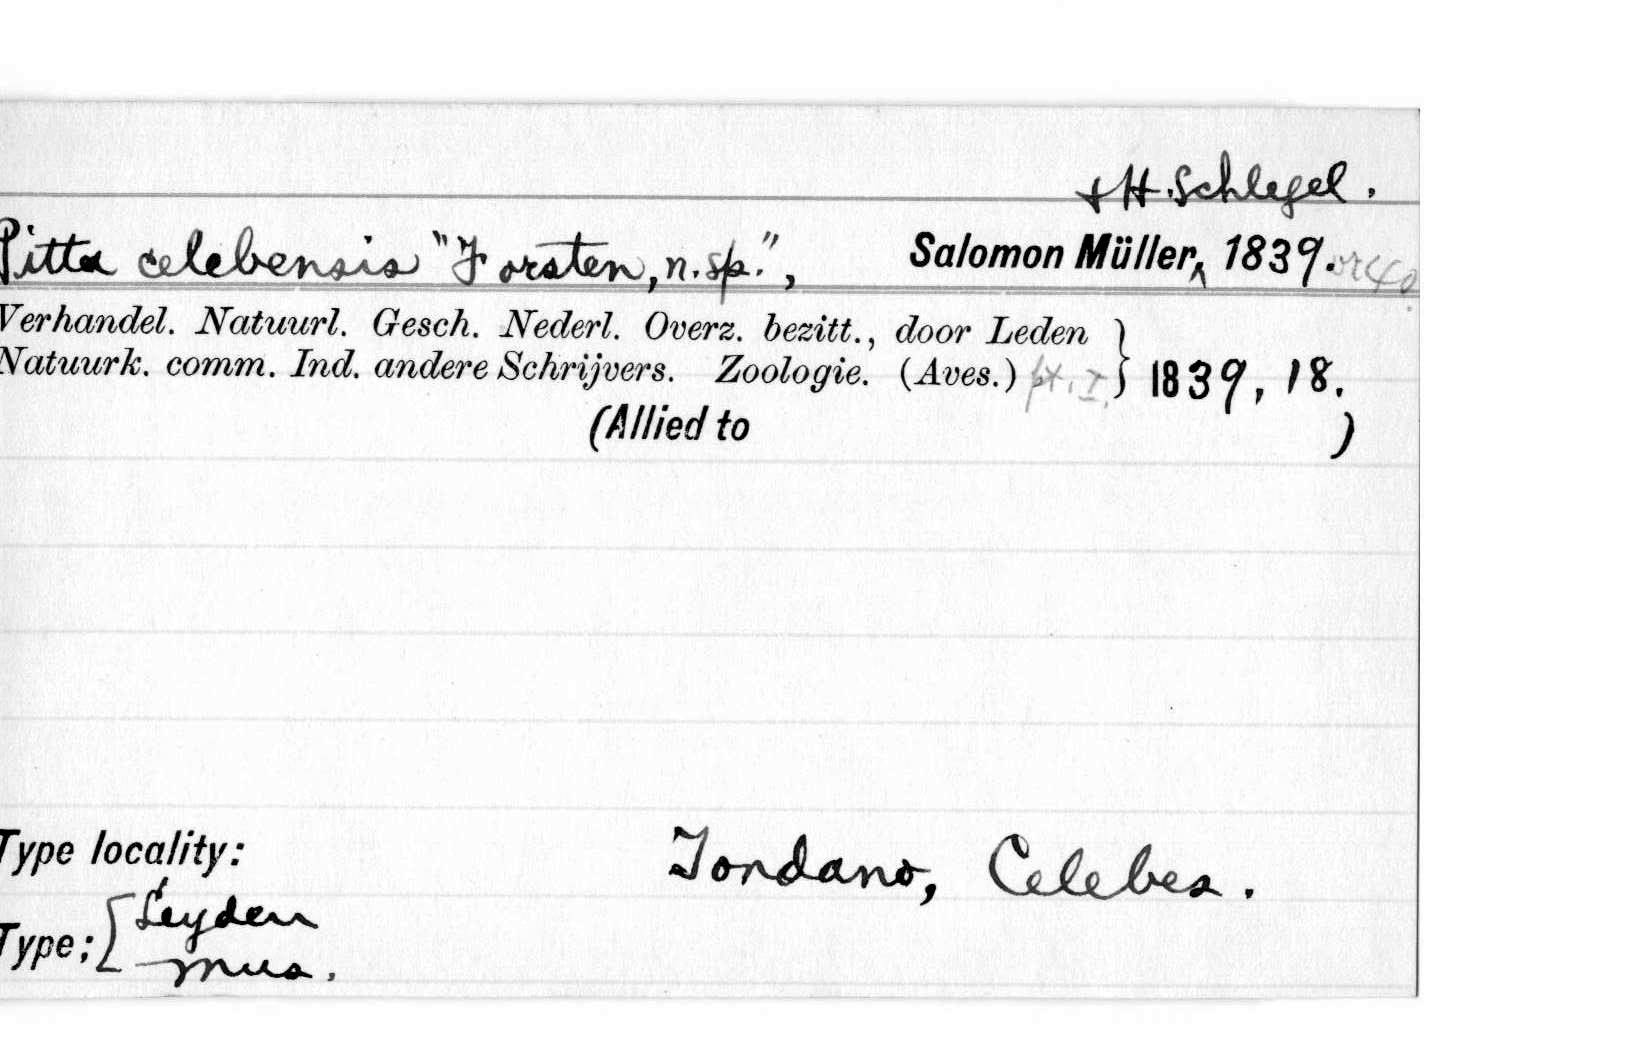 + H. Schlegel.
Pitta celebensis "Forsten, n. sp.", Salomon Müller, ^ 1839. or 40?
Verhandel. Natuurl. Gesch. Nederl. Overz. bezitt., door Leden
Natuurk. comm. Ind. andere Schrijvers. Zoologie. (Aves.) pt. I. } 1839, 18.
(Allied to )
Type locality: Tondano, Celebes.
Type; [ Leyden
Mus.